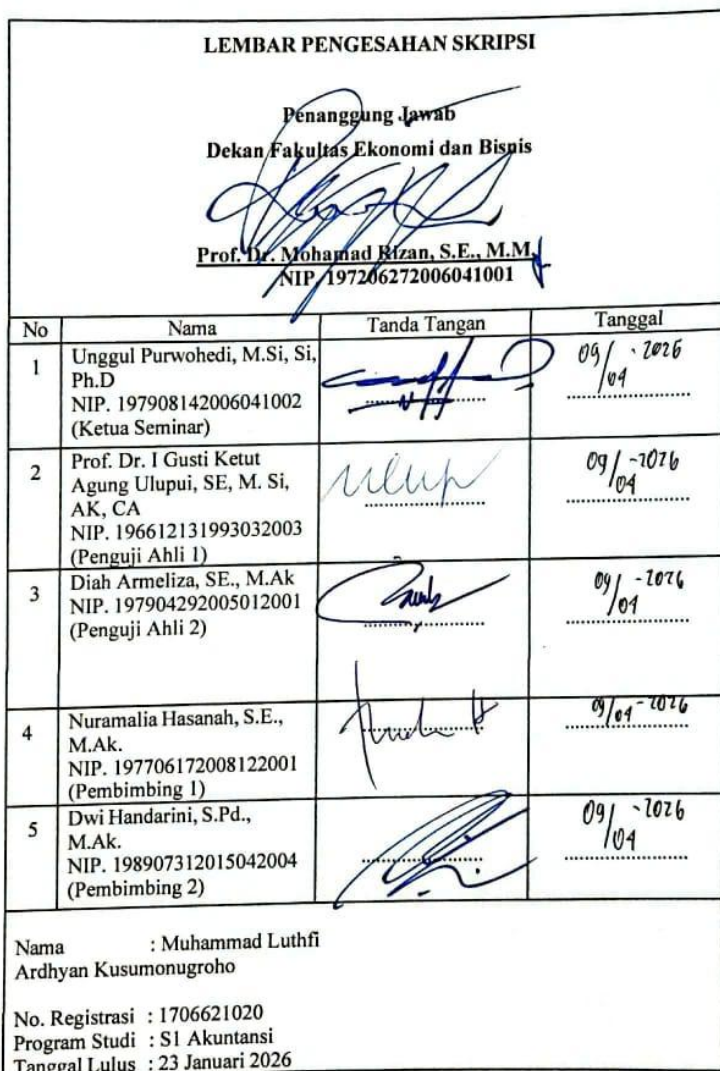 LEMBAR PENGESAHAN SKRIPSI
Penanggung Jawab
Dekan Fakultas Ekonomi dan Bisnis
Prof. Dr. Mohamad Rizan, S.E., M.M.
NIP. 197206272006041001
No Nama Tanda Tangan Tanggal
1 Unggul Purwohedi, M.Si, Si,
Ph.D
NIP. 197908142006041002
(Ketua Seminar)
09/04-2026
2 Prof. Dr. I Gusti Ketut
Agung Ulupui, SE, M. Si,
AK, CA
NIP. 196612131993032003
(Penguji Ahli 1)
09/04-2026
3 Diah Armeliza, SE., M.Ak
NIP. 197904292005012001
(Penguji Ahli 2)
09/04-2026
4 Nuramalia Hasanah, S.E.,
M.Ak.
NIP. 197706172008122001
(Pembimbing 1)
09/04-2026
5 Dwi Handarini, S.Pd.,
M.Ak.
NIP. 198907312015042004
(Pembimbing 2)
09/04-2026
Nama : Muhammad Luthfi
Ardhyan Kusumonugroho
No. Registrasi : 1706621020
Program Studi : S1 Akuntansi
Tanggal Lulus : 23 Januari 2026